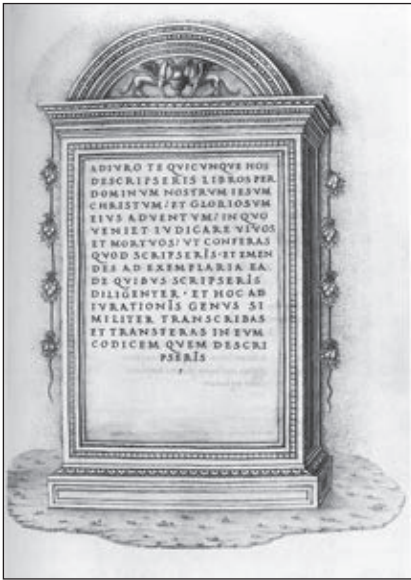 ADIVRO TE QVICVNQVE HOS
DESCRIPSERIS LIBROS PER
DOMINVM NOSTRVM IESVM
CHRISTVM/ ET GLORIOSVM
EIVS ADVENTVM/ IN QVO
VENIET IVDICARE VIVOS
ET MORTVOS/ VT CONFERAS
QVOD SCRIPSERĪS · ET EMEN
DES AD EXEMPLARIA EA
DE QVIBVS SCRIPSERĪS
DILIGENTER · ET HOC AD
IVRATIONĪS GENVS SI
MILITER TRANSCRIBAS
ET TRANSFERAS IN EVM
CODICEM QVEM DESCRI
PSERĪS